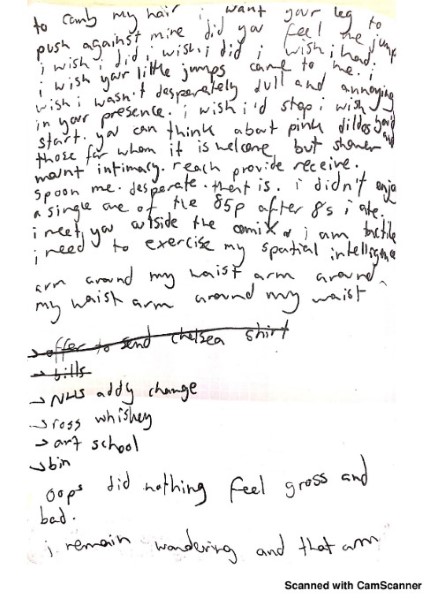 to comb my hair i want your leg to
push against mine did you feel me jump
i wish i did i wish i did i wish i had. i
i wish your little jumps came to me. i
wish i wasn't desperately dull and annoying
in your presence. i wish i'd stop i wish
start. you can think about pink dildos and
those for whom it is welcome but shower
mount intimacy. reach provide receive.
spoon me. desperate. that is. i didn't enjoy
a single one of the 85p after 8s i ate.
i meet you outside the comix i am tactile
i need to exercise my spatial intelligence
arm around my waist arm around
my waist arm around my waist
→ offer to send chelsea shirt
→ bills
→ NHS addy change
→ ross whiskey
→ art school
→ bin
oops did nothing feel gross and
bad.
i remain wandering and that arm
Scanned with CamScanner